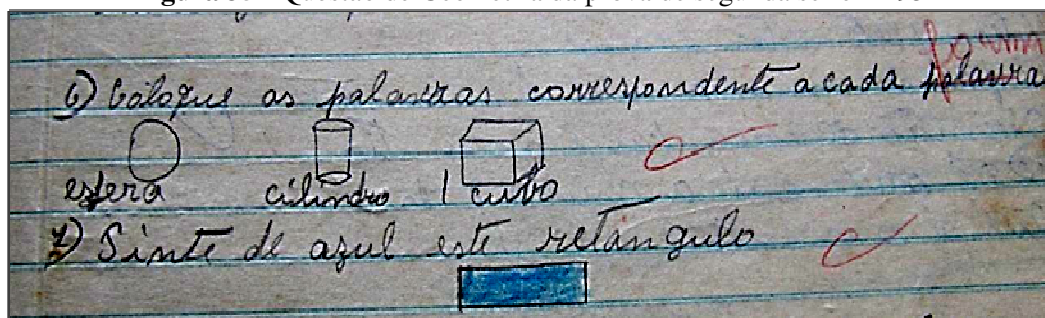 6) Coloque as palavras correspondente a cada palavra
forma
esfera cilindro 1 cubo
7) Sinte de azul este retângulo